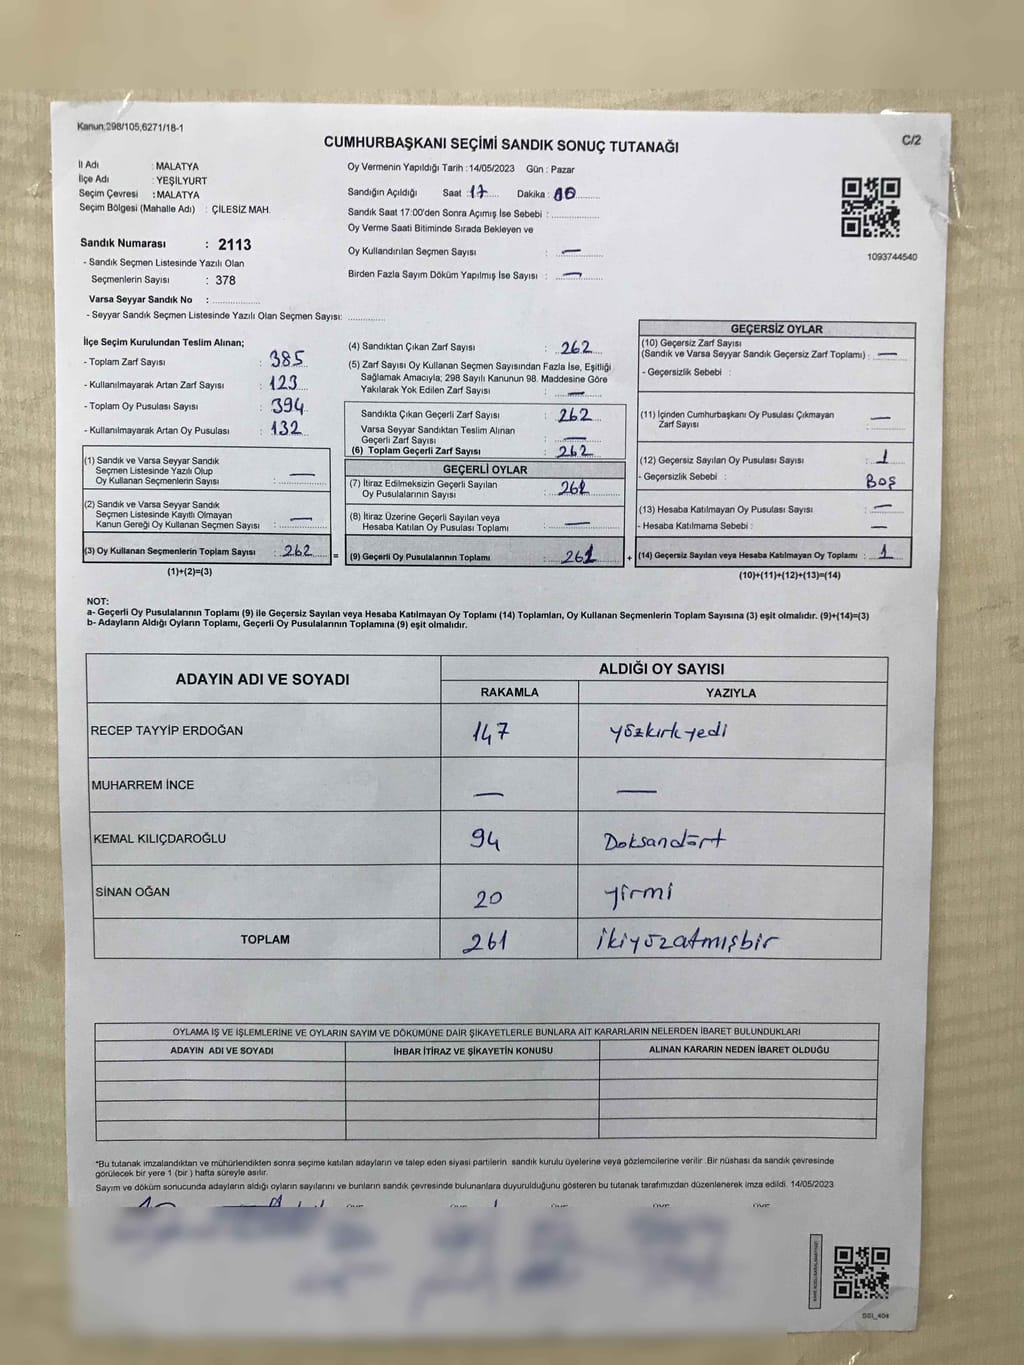 Kanun;298/105,6271/18-1
C/2
CUMHURBAŞKANI SEÇİMİ SANDIK SONUÇ TUTANAĞI
İl Adı : MALATYA
İlçe Adı : YEŞİLYURT
Seçim Çevresi : MALATYA
Seçim Bölgesi (Mahalle Adı) : ÇİLESİZ MAH.
Sandık Numarası : 2113
- Sandık Seçmen Listesinde Yazılı Olan
Seçmenlerin Sayısı : 378
Varsa Seyyar Sandık No :
- Seyyar Sandık Seçmen Listesinde Yazılı Olan Seçmen Sayısı:
Oy Vermenin Yapıldığı Tarih : 14/05/2023 Gün : Pazar
Sandığın Açıldığı Saat : 17 Dakika : 00
Sandık Saat 17:00'den Sonra Açımış İse Sebebi :
Oy Verme Saati Bitiminde Sırada Bekleyen ve
Oy Kullandırılan Seçmen Sayısı : —
Birden Fazla Sayım Döküm Yapılmış İse Sayısı : —
1093744540
İlçe Seçim Kurulundan Teslim Alınan;
- Toplam Zarf Sayısı : 385
- Kullanılmayarak Artan Zarf Sayısı : 123
- Toplam Oy Pusulası Sayısı : 394
- Kullanılmayarak Artan Oy Pusulası : 132
(1) Sandık ve Varsa Seyyar Sandık
Seçmen Listesinde Yazılı Olup
Oy Kullanan Seçmenlerin Sayısı : —
(2) Sandık ve Varsa Seyyar Sandık
Seçmen Listesinde Kayıtlı Olmayan
Kanun Gereği Oy Kullanan Seçmen Sayısı : —
(3) Oy Kullanan Seçmenlerin Toplam Sayısı : 262
(1)+(2)=(3)
=
(4) Sandıktan Çıkan Zarf Sayısı : 262
(5) Zarf Sayısı Oy Kullanan Seçmen Sayısından Fazla İse, Eşitliği
Sağlamak Amacıyla; 298 Sayılı Kanunun 98. Maddesine Göre
Yakılarak Yok Edilen Zarf Sayısı : —
Sandıkta Çıkan Geçerli Zarf Sayısı : 262
Varsa Seyyar Sandıktan Teslim Alınan
Geçerli Zarf Sayısı : —
(6) Toplam Geçerli Zarf Sayısı : 262
GEÇERLİ OYLAR
(7) İtiraz Edilmeksizin Geçerli Sayılan
Oy Pusulalarının Sayısı : 261
(8) İtiraz Üzerine Geçerli Sayılan veya
Hesaba Katılan Oy Pusulası Toplamı : —
(9) Geçerli Oy Pusulalarının Toplamı : 261
+
GEÇERSİZ OYLAR
(10) Geçersiz Zarf Sayısı
(Sandık ve Varsa Seyyar Sandık Geçersiz Zarf Toplamı) : —
- Geçersizlik Sebebi :
(11) İçinden Cumhurbaşkanı Oy Pusulası Çıkmayan
Zarf Sayısı : —
(12) Geçersiz Sayılan Oy Pusulası Sayısı : 1
- Geçersizlik Sebebi : Boş
(13) Hesaba Katılmayan Oy Pusulası Sayısı : —
- Hesaba Katılmama Sebebi : —
(14) Geçersiz Sayılan veya Hesaba Katılmayan Oy Toplamı : 1
(10)+(11)+(12)+(13)=(14)
NOT:
a- Geçerli Oy Pusulalarının Toplamı (9) ile Geçersiz Sayılan veya Hesaba Katılmayan Oy Toplamı (14) Toplamları, Oy Kullanan Seçmenlerin Toplam Sayısına (3) eşit olmalıdır. (9)+(14)=(3)
b- Adayların Aldığı Oyların Toplamı, Geçerli Oy Pusulalarının Toplamına (9) eşit olmalıdır.
ADAYIN ADI VE SOYADI
ALDIĞI OY SAYISI
RAKAMLA YAZIYLA
RECEP TAYYİP ERDOĞAN 147 yüzkırkyedi
MUHARREM İNCE — —
KEMAL KILIÇDAROĞLU 94 Doksandört
SİNAN OĞAN 20 yirmi
TOPLAM 261 ikiyüzatmışbir
OYLAMA İŞ VE İŞLEMLERİNE VE OYLARIN SAYIM VE DÖKÜMÜNE DAİR ŞİKAYETLERLE BUNLARA AİT KARARLARIN NELERDEN İBARET BULUNDUKLARI
ADAYIN ADI VE SOYADI İHBAR İTİRAZ VE ŞİKAYETİN KONUSU ALINAN KARARIN NEDEN İBARET OLDUĞU
*Bu tutanak imzalandıktan ve mühürlendikten sonra seçime katılan adayların ve talep eden siyasi partilerin sandık kurulu üyelerine veya gözlemcilerine verilir .Bir nüshası da sandık çevresinde
görülecek bir yere 1 (bir ) hafta süreyle asılır.
Sayım ve döküm sonucunda adayların aldığı oyların sayılarını ve bunların sandık çevresinde bulunanlara duyurulduğunu gösteren bu tutanak tarafımızdan düzenlenerek imza edildi. 14/05/2023